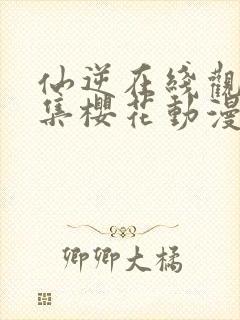 仙逆在綫觀
集櫻花動漫
卿卿大橘